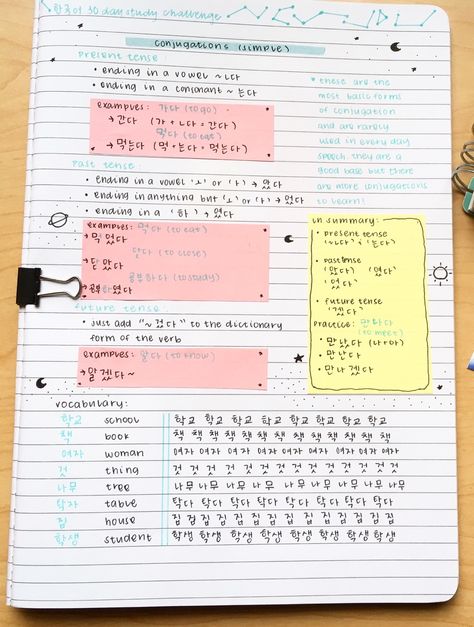 한국어 30 day study challenge
conjugations (simple)
present tense:
• ending in a vowel ~ㄴ다
• ending in a consonant ~는다
examples: 가다 (to go)
→ 간다 (가+ㄴ다=간다)
먹다 (to eat)
→ 먹는다 (먹+는다=먹는다)
* these are the
most basic forms
of conjugation
and are rarely
used in every day
speech. they are a
good base but there
are more conjugations
to learn!
past tense:
• ending in a vowel 'ㅗ' or 'ㅏ' → 았다
• ending in anything but 'ㅗ' or 'ㅏ' → 었다
• ending in a '하' → 였다
examples: 먹다 (to eat)
→ 먹었다
닫다 (to close)
→ 닫았다
공부하다 (to study)
→ 공부하였다
future tense:
• just add "~겠다" to the dictionary
form of the verb
examples: 알다 (to know)
→ 알겠다~
in summary:
• present tense
(~ㄴ다) + (는다)
• past tense
(았다) (었다)
(였다)
• future tense
(겠다)
practice: 만나다
(to meet)
• 만났다 (나+아)
• 만난다
• 만나겠다
vocabulary:
학교 school 학교 학교 학교 학교 학교 학교 학교 학교
책 book 책 책 책 책 책 책 책 책 책 책 책
여자 woman 여자 여자 여자 여자 여자 여자 여자 여자 여자
것 thing 것 것 것 것 것 것 것 것 것 것 것
나무 tree 나무 나무 나무 나무 나무 나무 나무 나무
탁자 table 탁다 탁다 탁다 탁다 탁다 탁다 탁다 탁다
집 house 집 집 집 집 집 집 집 집 집 집 집
학생 student 학생 학생 학생 학생 학생 학생 학생 학생